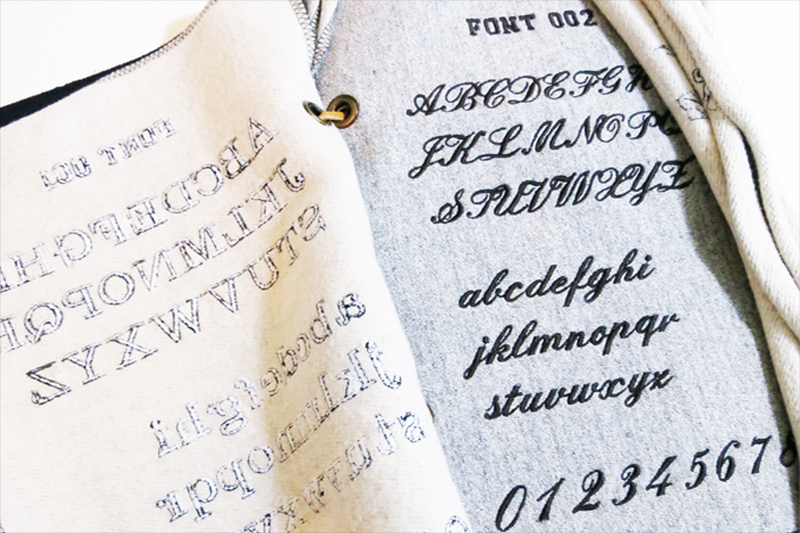 FONT 001
ABCDEFGHI
JKLMNOPQR
STUVWXYZ
abcdefghi
jklmnopqr
stuvwxyz
FONT 002
ABCDEFGH
JKLMNOPQ
STUVWXYZ
abcdefghi
jklmnopqr
stuvwxyz
012345678